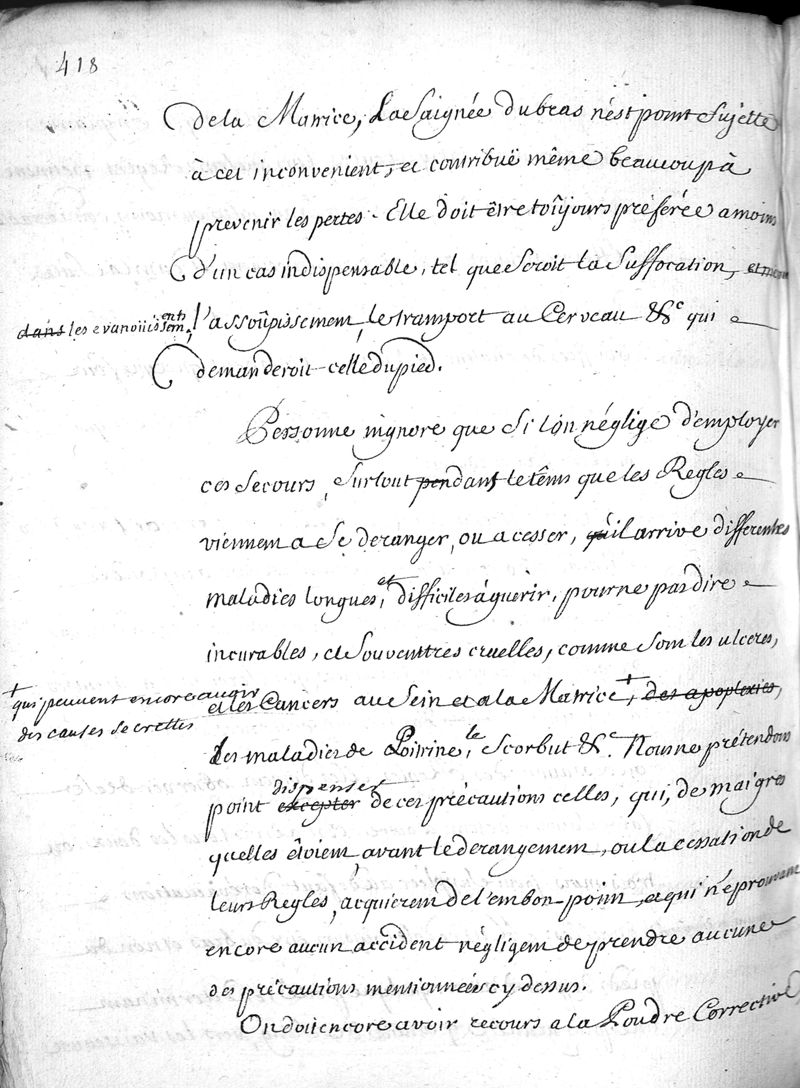 418
de la Matrice, La Saignée du bras n'est point Sujette
à cet inconvenient, et contribuë même beaucoup à
prevenir les pertes. Elle doit être toûjours préferée a moins
d'un cas indispensable, tel que Seroit la Suffocation, et même
dans les evanouissements, l'assoûpissement, le transport au Cerveau &c qui
demanderoit celle du pied.
Personne n'ignore que Si l'on néglige d'employer
ces Secours, Surtout pendant le têms que les Regles
viennent a Se deranger, ou a cesser, qu'il arrive differentes
maladies longues, et difficiles à guérir, pour ne pas dire
incurables, et Souvent tres cruelles, comme Sont les ulceres,
et les Cancers au Sein et a la Matrice +, des apoplexies,
+ qui peuvent encore avoir
des causes Secrettes
Les maladies de Poitrine, le Scorbut &c. Nous ne prétendons
point excepter dispenser de ces précautions celles, qui, de maigres
quelles étoient, avant le derangement, ou la cessation de
leurs Regles, acquierent de l'embon-point, et qui n'eprouvant
encore aucun accident négligent de prendre aucune
des précautions mentionnées cy dessus.
On doit encore avoir recours a la Poudre Corrective